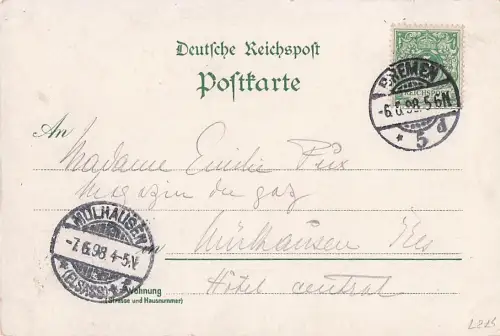 Deutsche Reichspost
Postkarte
REICHSPOST
BREMEN
-6.6.98.5-6N
* 5 d
An
Madame Emilie
Magazin du gaz
MÜLHAUSEN
-7.6.98 4-5.N
*(ELSASS)*
in Mülhausen Els
Wohnung
(Strasse und Hausnummer)
Hôtel central